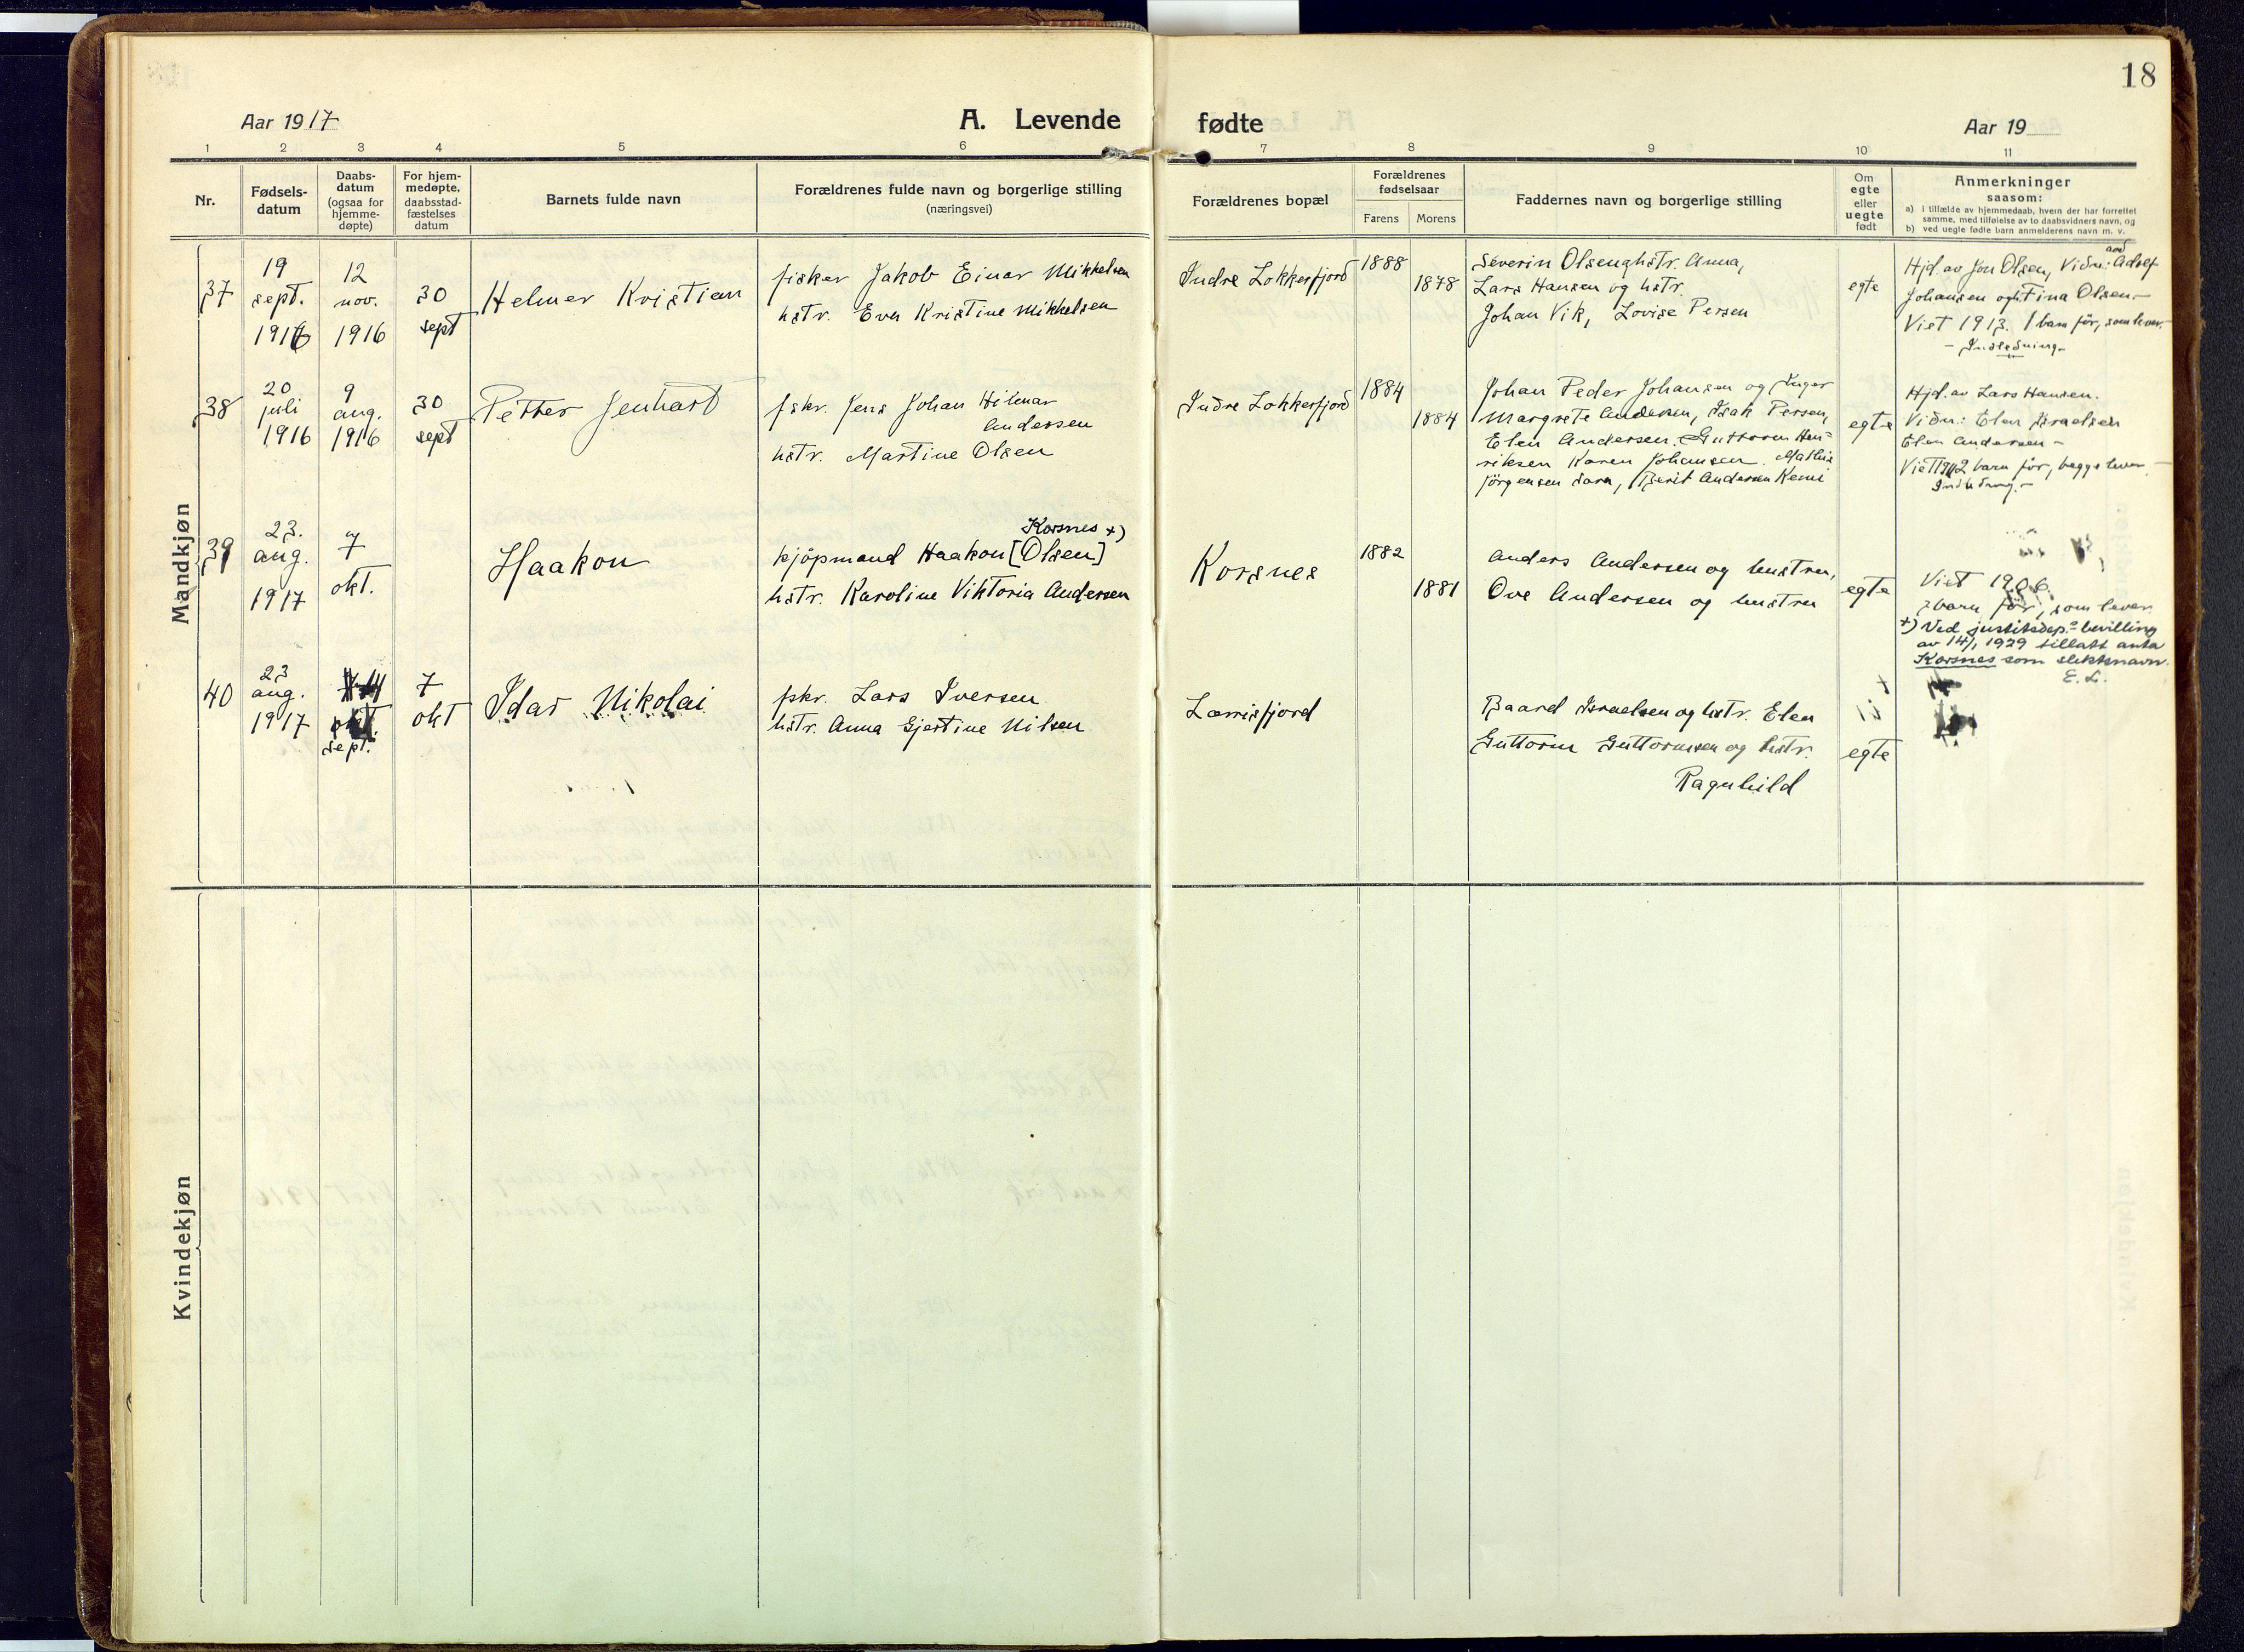 18
Aar 1917
A. Levende
fødte
Aar 19
1 2 3 4 5 6 7 8 9 10 11
Nr.
Fødsels-
datum
Daabs-
datum
(ogsaa for
hjemme-
døpte)
For hjem-
medøpte,
daabsstad-
fæstelses
datum
Barnets fulde navn
Forældrenes fulde navn og borgerlige stilling
(næringsvei)
Forældrenes bopæl
Forældrenes
fødselsaar
Farens Morens
Faddernes navn og borgerlige stilling
Om
egte
eller
uegte
født
Anmerkninger
saasom:
a) i tilfælde av hjemmedaab, hvem der har forrettet
samme, med tilføielse av to daabsvidners navn, og
b) ved uegte fødte barn anmelderens navn m. v.
Mandkjøn
37
19
sept.
1916
12
nov.
1916
30
sept
Helmer Kristian
fisker Jakob Einar Mikkelsen
hstr. Eva Kristine Mikkelsen
Indre Lokkerfjord
1888
1878
Severin Olsen og hstr. Anna,
Lars Hansen og hstr.
Johan Vik, Lovise Persen
egte
Hjd. av Jon Olsen, Vidn: Adolf
Johansen og Fina Olsen.-
Viet 1913. 1 barn før, som lever.
- Indledning -
38
20
juli
1916
9
aug.
1916
30
sept
Petter Jenhart
fskr. Jens Johan Hilmar
Andersen
hstr. Martine Olsen
Indre Lokkerfjord
1884
1884
Johan Peder Johansen og Inger
Margrete Andersen, Isak Persen,
Elen Andersen. Guttorm Hen-
riksen Karen Johansen. Mathis
Jørgensen Sara, Berit Andersen Kemi
egte
Hjd. av Lars Hansen.
Vidn: Elen Israelsen
Elen Andersen -
2 barn før, begge lever. -
39
23.
aug.
1917
7
okt.
Haakon
Korsnes +)
kjøpmand Haakon [Olsen]
hstr. Karoline Viktoria Andersen
Korsnes
1882
1881
Anders Andersen og hustru,
Ove Andersen og hustru
egte
Viet 1906.
barn før, som lever
+) Ved justitsdep.s bevilling
av 14/1 1929 tillatt anta
Korsnes som slektsnavn.
E. L.
40
23
aug.
1917
sept.
7
okt
Idar Nikolai
fskr. Lars Iversen
hstr. Anna Gjertine Nilsen
Lærrisfjord
Baard Israelsen og hstr. Elen
Guttorm Guttormsen og hstr.
Ragnhild
egte
Kvindekjøn